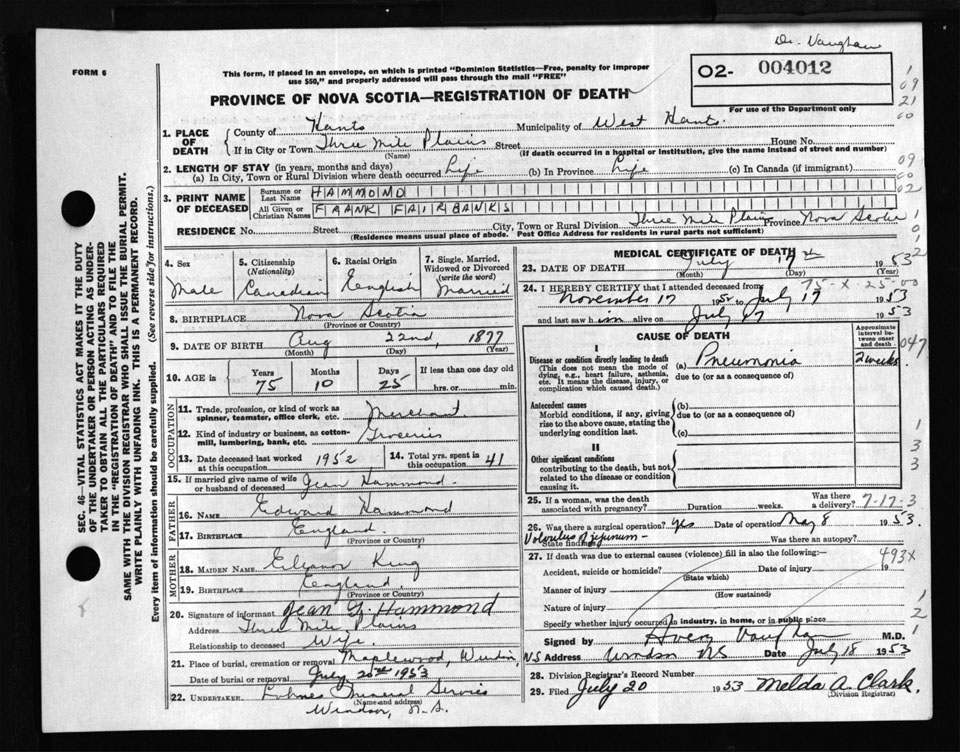 Dr. Vaughan
FORM 6
This form, if placed in an envelope, on which is printed "Dominion Statistics—Free, penalty for improper
use $50," and properly addressed will pass through the mail "FREE"
02- 004012
For use of the Department only
PROVINCE OF NOVA SCOTIA—REGISTRATION OF DEATH
1. PLACE OF DEATH { County of Hants Municipality of West Hants.
If in City or Town Three Mile Plains Street House No.
(Name) (If death occurred in a hospital or institution, give the name instead of street and number)
2. LENGTH OF STAY (in years, months and days)
(a) In City, Town or Rural Division where death occurred Life (b) In Province Life (c) In Canada (if immigrant)
3. PRINT NAME OF DECEASED { Surname or Last Name HAMMOND
All Given or Christian Names FRANK FAIRBANKS
RESIDENCE No. Street City, Town or Rural Division Three Mile Plains Province Nova Scotia
(Residence means usual place of abode. Post Office Address for residents in rural parts not sufficient)
SEC. 46—VITAL STATISTICS ACT MAKES IT THE DUTY
OF THE UNDERTAKER OR PERSON ACTING AS UNDER-
TAKER TO OBTAIN ALL THE PARTICULARS REQUIRED
IN THE "REGISTRATION OF DEATH" AND TO FILE THE
SAME WITH THE DIVISION REGISTRAR WHO SHALL ISSUE THE BURIAL PERMIT.
WRITE PLAINLY WITH UNFADING INK. THIS IS A PERMANENT RECORD.
Every item of information should be carefully supplied. (See reverse side for instructions.)
4. Sex Male
5. Citizenship (Nationality) Canadian
6. Racial Origin English
7. Single, Married, Widowed or Divorced (write the word) Married
8. BIRTHPLACE Nova Scotia
(Province or Country)
9. DATE OF BIRTH Aug 22nd, 1877
(Month) (Day) (Year)
10. AGE in { Years 75 Months 10 Days 25 If less than one day old
hrs. or min.
OCCUPATION
11. Trade, profession, or kind of work as spinner, teamster, office clerk, etc. Merchant.
12. Kind of industry or business, as cotton-mill, lumbering, bank, etc. Groceries
13. Date deceased last worked at this occupation 1952
14. Total yrs. spent in this occupation 41
15. If married give name of wife or husband of deceased Jean Hammond.
FATHER
16. NAME Edward Hammond
17. BIRTHPLACE England
(Province or Country)
MOTHER
18. MAIDEN NAME Eleanor King
19. BIRTHPLACE England
(Province or Country)
20. Signature of informant Jean G. Hammond
Address Three Mile Plains
Relationship to deceased Wife.
21. Place of burial, cremation or removal Maplewood, Windsor,
Date of burial or removal July 20th 1953
22. UNDERTAKER Funeral Service
(Name and address)
Windsor, N.S.
MEDICAL CERTIFICATE OF DEATH
23. DATE OF DEATH July 17th 1953
(Month) (Day) (Year)
75-X 25-00
24. I HEREBY CERTIFY that I attended deceased from
November 17 1952 to July 17 1953
and last saw him alive on July 17 1953
CAUSE OF DEATH
Approximate interval between onset and death
I
Disease or condition directly leading to death
(This does not mean the mode of dying, e.g., heart failure, asthenia, etc. It means the disease, injury, or complication which caused death.)
(a) Pneumonia 2 weeks
due to (or as a consequence of)
Antecedent causes
Morbid conditions, if any, giving rise to the above cause, stating the underlying condition last.
(b)
due to (or as a consequence of)
(c)
II
Other significant conditions
contributing to the death, but not related to the disease or condition causing it.
25. If a woman, was the death associated with pregnancy? Duration weeks. Was there a delivery? 7-17-3
26. Was there a surgical operation? Yes Date of operation May 8 1953.
State findings Volvulus of jejunum - Was there an autopsy?
27. If death was due to external causes (violence) fill in also the following:— 493X
Accident, suicide or homicide? Date of injury 19
(State which)
Manner of injury
(How sustained)
Nature of injury
Specify whether injury occurred in industry, in home, or in public place
Signed by Avery Vaughan M.D.
NS Address Windsor NS Date July 18 1953
28. Division Registrar's Record Number
29. Filed July 20 1953 Melda A. Clark.
(Division Registrar)
1
09
21
00
09
00
02
1
0
1
2
047
1
3
3
1
2
1